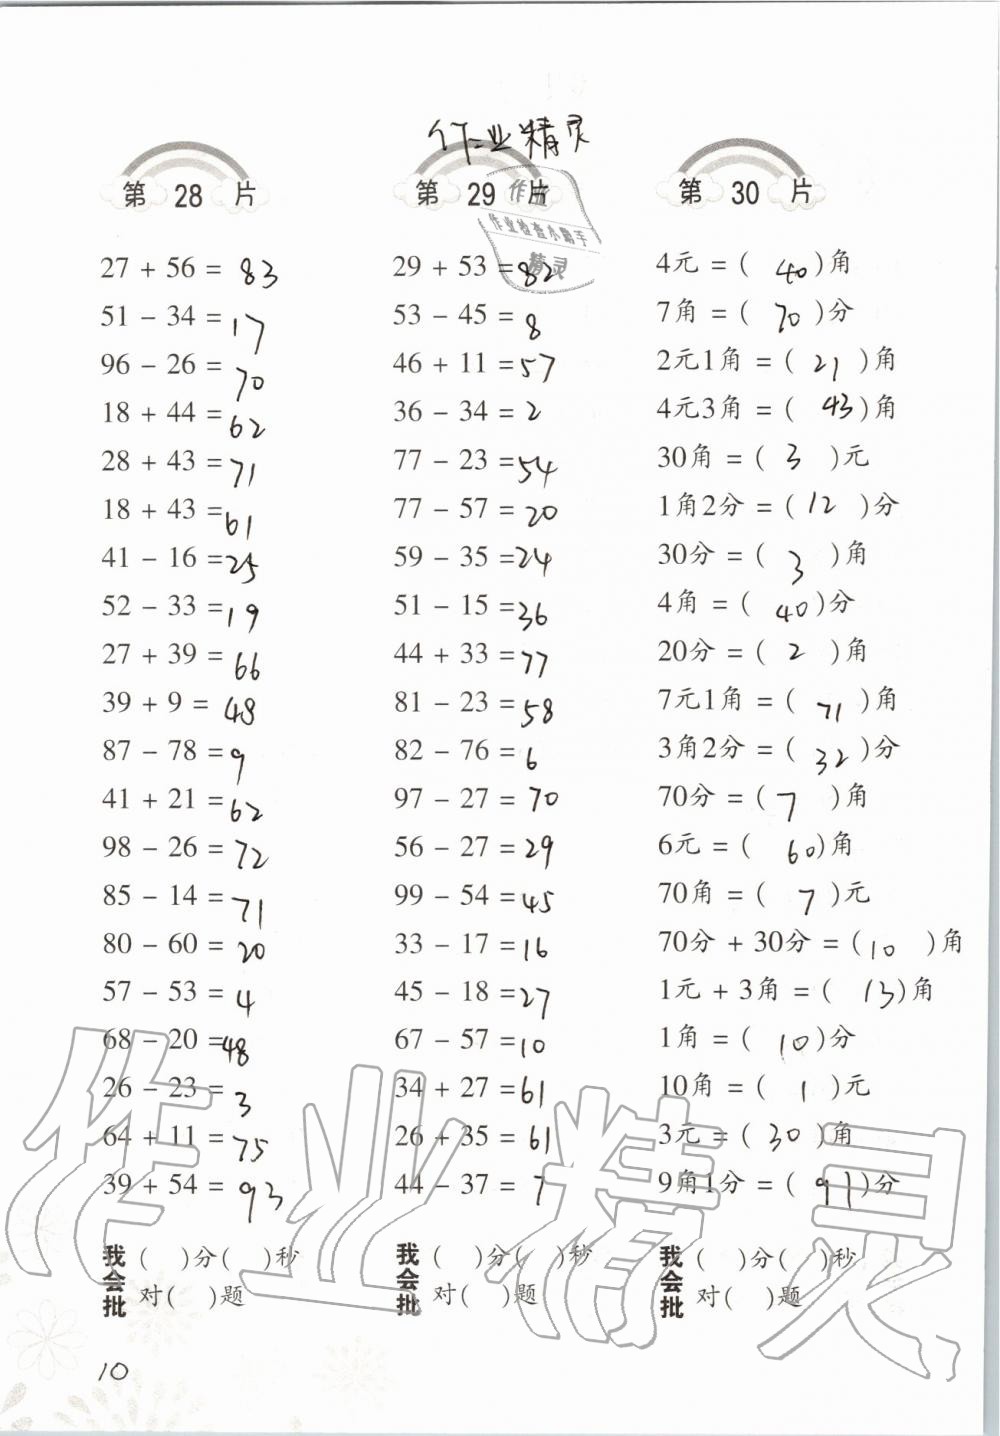 作业精灵
第 28 片
27 + 56 = 83
51 - 34 = 17
96 - 26 = 70
18 + 44 = 62
28 + 43 = 71
18 + 43 = 61
41 - 16 = 25
52 - 33 = 19
27 + 39 = 66
39 + 9 = 48
87 - 78 = 9
41 + 21 = 62
98 - 26 = 72
85 - 14 = 71
80 - 60 = 20
57 - 53 = 4
68 - 20 = 48
26 - 23 = 3
64 + 11 = 75
39 + 54 = 93
我会批
( )分( )秒
对( )题
第 29 片
作业
作业检查小助手
精灵
29 + 53 = 82
53 - 45 = 8
46 + 11 = 57
36 - 34 = 2
77 - 23 = 54
77 - 57 = 20
59 - 35 = 24
51 - 15 = 36
44 + 33 = 77
81 - 23 = 58
82 - 76 = 6
97 - 27 = 70
56 - 27 = 29
99 - 54 = 45
33 - 17 = 16
45 - 18 = 27
67 - 57 = 10
34 + 27 = 61
26 + 35 = 61
44 - 37 = 7
我会批
( )分( )秒
对( )题
第 30 片
4元 = ( 40 )角
7角 = ( 70 )分
2元1角 = ( 21 )角
4元3角 = ( 43 )角
30角 = ( 3 )元
1角2分 = ( 12 )分
30分 = ( 3 )角
4角 = ( 40 )分
20分 = ( 2 )角
7元1角 = ( 71 )角
3角2分 = ( 32 )分
70分 = ( 7 )角
6元 = ( 60 )角
70角 = ( 7 )元
70分 + 30分 = ( 10 )角
1元 + 3角 = ( 13 )角
1角 = ( 10 )分
10角 = ( 1 )元
3元 = ( 30 )角
9角1分 = ( 91 )分
我会批
( )分( )秒
对( )题
作业精灵
10